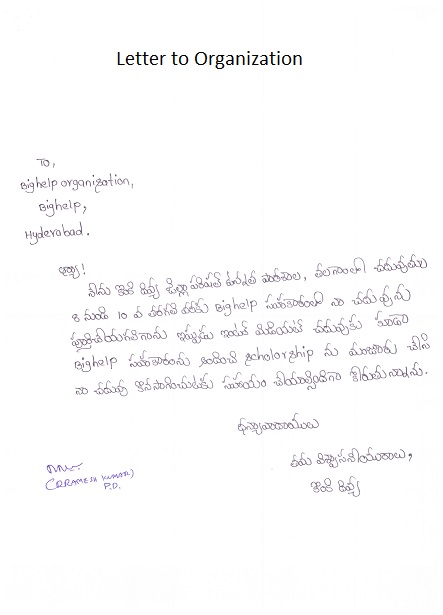 Letter to Organization
To,
Bighelp organization,
Bighelp,
Hyderabad.
అయ్యా!
నేను కొంకి దివ్య జిల్లాపరిషత్ ఉన్నత పాఠశాల, తలగాంలో చదువుతూ
8 నుండి 10 వ తరగతి వరకు Bighelp సహకారంతో నా చదువును
పూర్తిచేయగలిగాను ఇప్పుడు ఇంటర్ మీడియట్ చదువుకు కూడా
Bighelp సహకారంను అందించి scholorship ను మంజూరు చేసి
నా చదువు కొనసాగించుటకు సహాయం చేయాల్సిందిగా కోరుచున్నాను.
ధన్యావాదాములు
తమ విశ్వాసనీయురాలు,
కొంకి దివ్య
RAMESH KUMAR)
P.D.